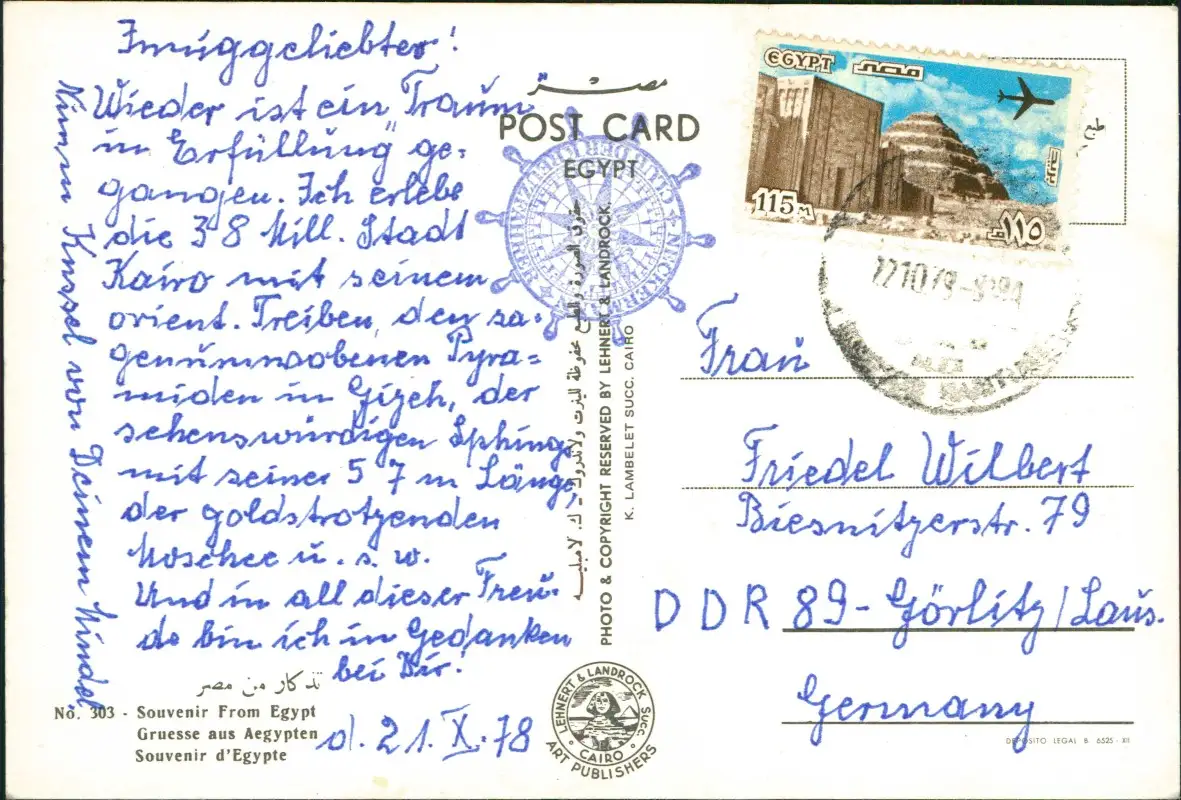 Innuggeliebter!
Wieder ist ein „Traum
in Erfüllung" ge-
gangen. Ich erlebe
die 38 Mill. Stadt
Kairo mit seinem
orient. Treiben, den sa-
genumwobenen Pyra-
miden in Gizeh, der
sehenswürdigen Sphinx
mit seiner 57 m Länge,
der goldstrotzenden
Moschee u. s. w.
Und in all dieser Freu-
de bin ich in Gedanken
bei Dir!
d. 21. X. 78
von Deinem
مصر
POST CARD
EGYPT
EGYPT مصر
115 M
١١٥
بريد
طابع
22 10 78
PHOTO & COPYRIGHT RESERVED BY LEHNERT & LANDROCK
K. LAMBELET SUCC. CAIRO
Frau
Friedel Wilbert
Biesnitzerstr. 79
DDR 89 - Görlitz/Laus.
Germany
تذكار من مصر
No. 303 - Souvenir From Egypt
Gruesse aus Aegypten
Souvenir d'Egypte
LEHNERT & LANDROCK SUCC.
CAIRO
ART PUBLISHERS
DEPOSITO LEGAL B. 6525 - XII